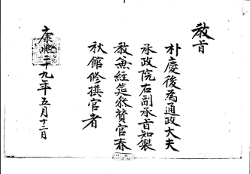 敎旨
朴慶後爲通政大夫
承政院右副承旨知製
敎兼經筵參贊官春
秋館修撰官者
康熙二十九年五月十二日